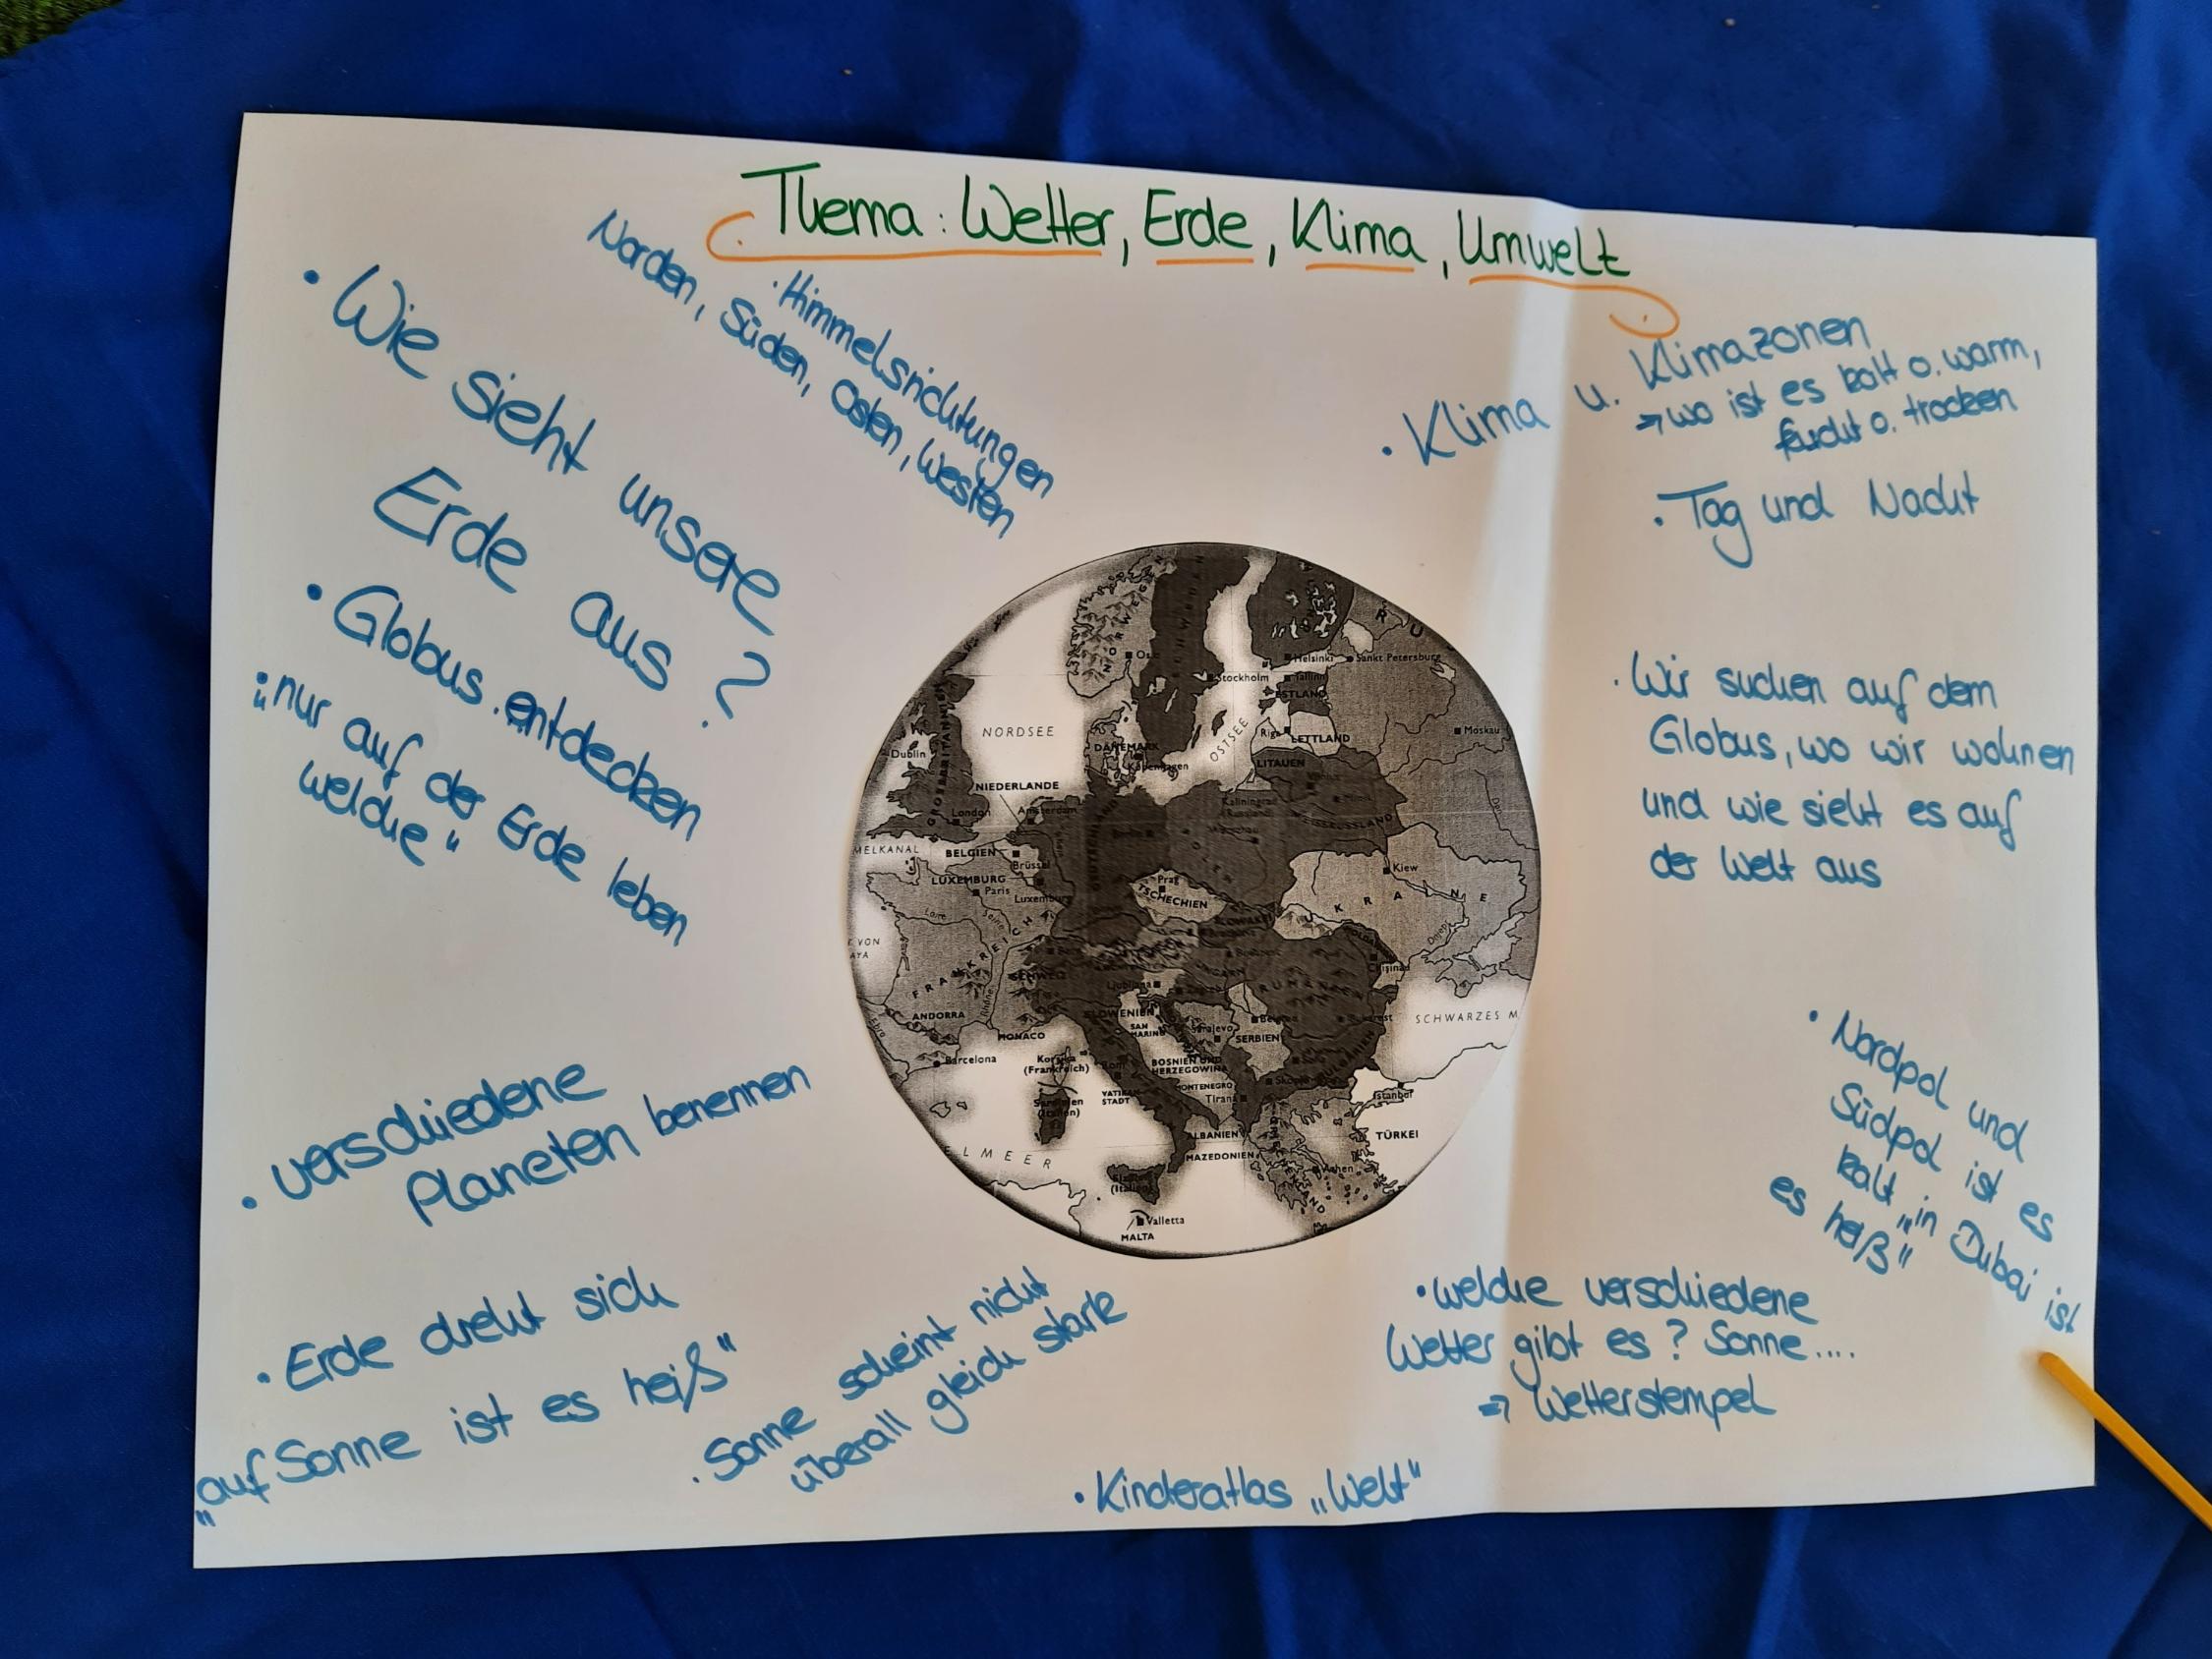 Thema: Wetter, Erde, Klima, Umwelt
· Himmelsrichtungen
Norden, Süden, Osten, Westen
· Wie sieht unsere
Erde aus?
· Globus entdecken
"nur auf der Erde leben
welche"
· verschiedene
Planeten benennen
· Erde dreht sich
"auf Sonne ist es heiß"
· Sonne scheint nicht
überall gleich stark
· Kinderatlas „Welt"
· Klima u. Klimazonen
→ wo ist es kalt o. warm,
feucht o. trocken
· Tag und Nacht
· Wir suchen auf dem
Globus, wo wir wohnen
und wie sieht es auf
der Welt aus
· Nordpol und
Südpol ist es
kalt „in Dubai ist
es heiß"
· welche verschiedene
Wetter gibt es? Sonne....
⇒ Wetterstempel
NORWEGEN
Helsinki
Sankt Petersburg
Stockholm
Tallinn
ESTLAND
NORDSEE
OSTSEE
Riga
LETTLAND
Moskau
Dublin
GROSSBRITANNIEN
DÄNEMARK
Kopenhagen
LITAUEN
NIEDERLANDE
London
Amsterdam
Kaliningrad
(Russland)
WEISSRUSSLAND
DEUTSCHLAND
POLEN
MELKANAL
BELGIEN
Brüssel
LUXEMBURG
Paris
Luxemburg
Prag
TSCHECHIEN
Kiew
UKRAINE
Loire
Seine
FRANKREICH
K VON
AYA
SCHWEIZ
Ljubljana
RUMÄNIEN
Chișinău
Rhône
ANDORRA
MONACO
SLOWENIEN
SAN
MARINO
Sarajevo
SERBIEN
SCHWARZES M
Ebro
Barcelona
Korsika
(Frankreich)
BOSNIEN UND
HERZEGOWINA
MONTENEGRO
VATIKAN
STADT
Tirana
Skopje
BULGARIEN
Istanbul
Sardinien
(Italien)
ALBANIEN
MAZEDONIEN
TÜRKEI
ELMEER
Athen
Valletta
MALTA